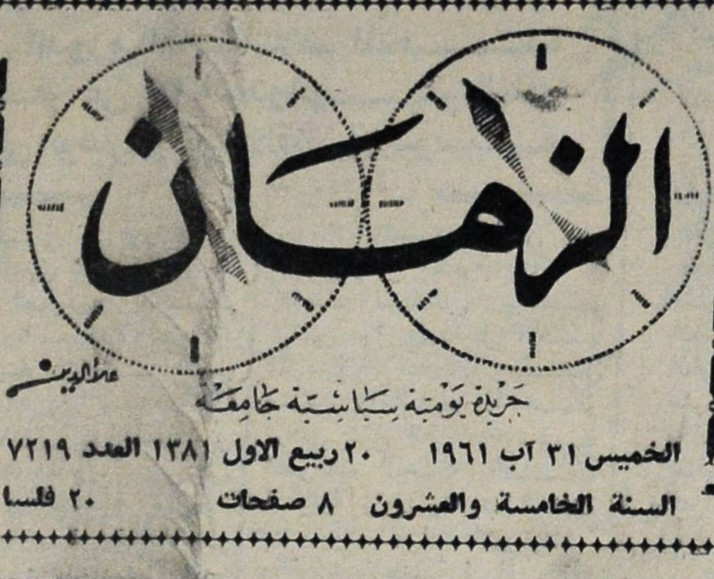 الزمان
علاء الدين
جريدة يومية سياسية جامعة
الخميس ٣١ آب ١٩٦١ ٢٠ ربيع الاول ١٣٨١ العدد ٧٢١٩
السنة الخامسة والعشرون ٨ صفحات ٢٠ فلسا